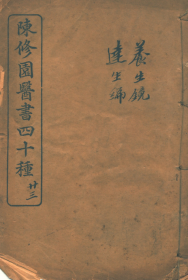 養生鏡
達生編
陳修園醫書四十種
廿三